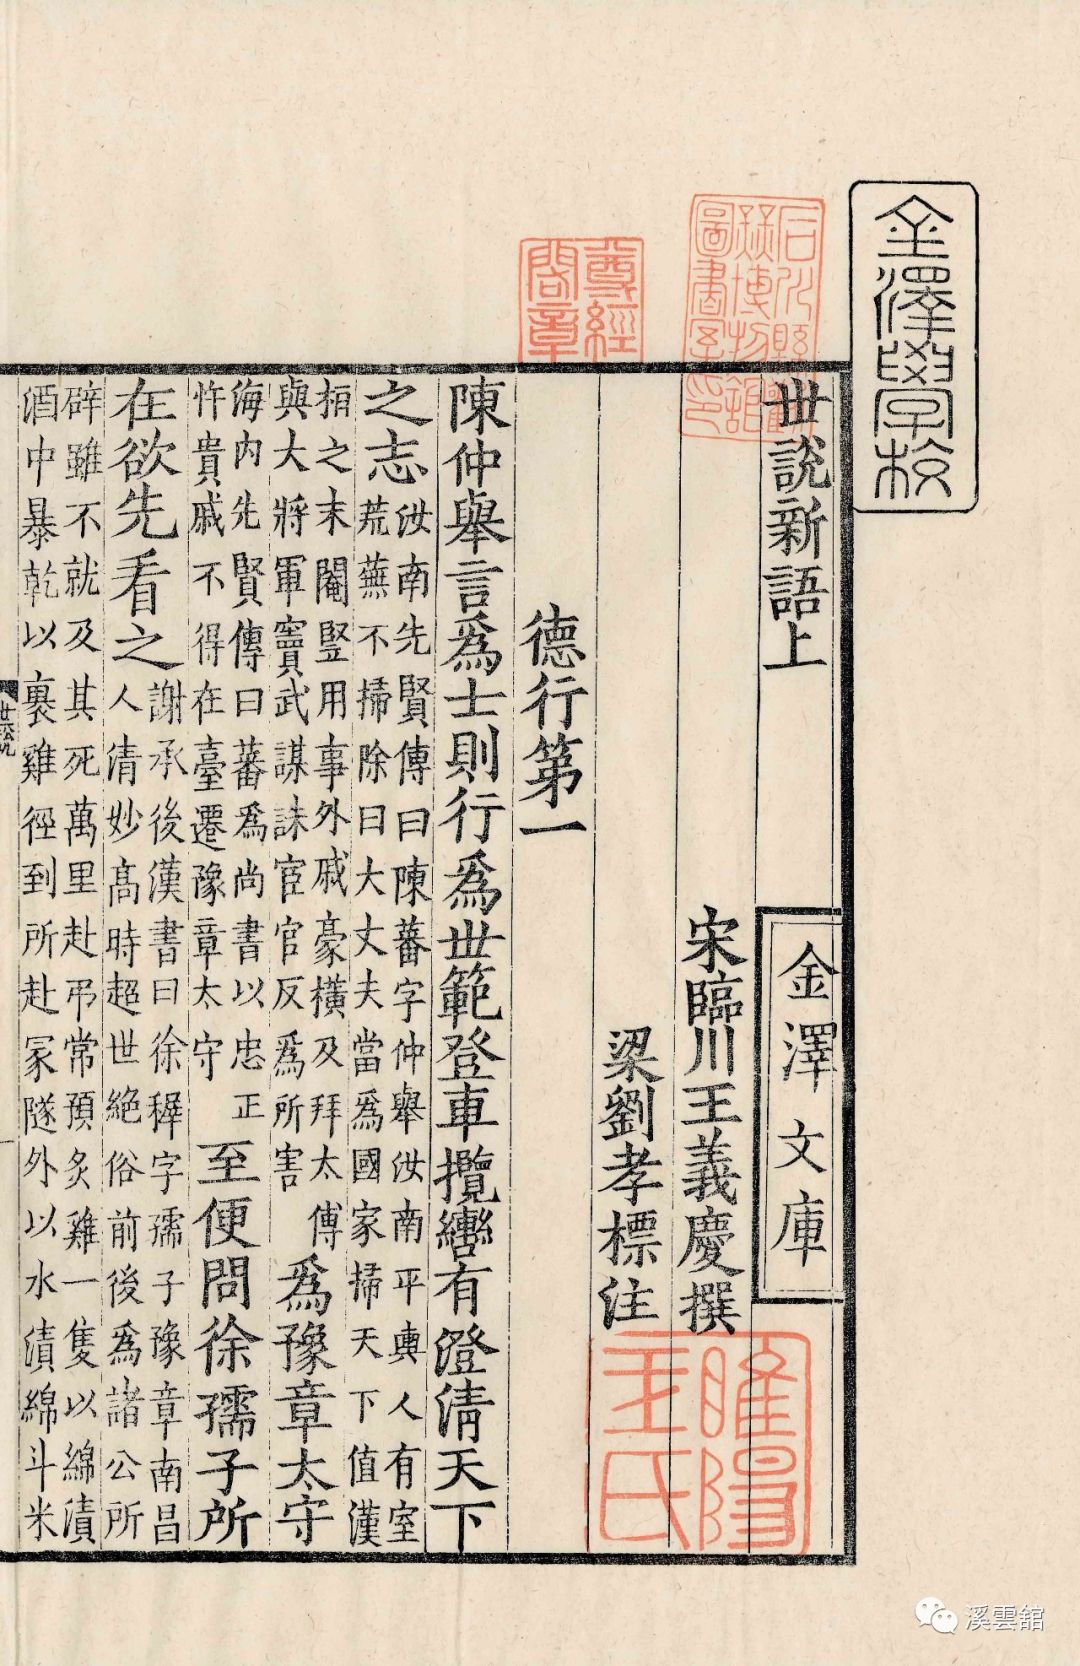 金澤學校
石川縣勸
業博物館
圖書室印
尊經
閣章
世說新語上
金澤文庫
宋臨川王義慶撰
梁劉孝標注
睢陽
王氏
德行第一
陳仲舉言爲士則行爲世範登車攬轡有澄清天下
之志
汝南先賢傳曰陳蕃字仲舉汝南平輿人有室
荒蕪不掃除曰大丈夫當爲國家掃天下值漢
桓之末閹豎用事外戚豪橫及拜太傅
與大將軍竇武謀誅宦官反爲所害
爲豫章太守
海內先賢傳曰蕃爲尚書以忠正
忤貴戚不得在臺遷豫章太守
至便問徐孺子所
在欲先看之
謝承後漢書曰徐穉字孺子豫章南昌
人清妙髙時超世絕俗前後爲諸公所
辟雖不就及其死萬里赴弔常預炙雞一隻以綿漬
酒中暴乾以裹雞徑到所赴冢隧外以水漬綿斗米
世說
溪雲舘